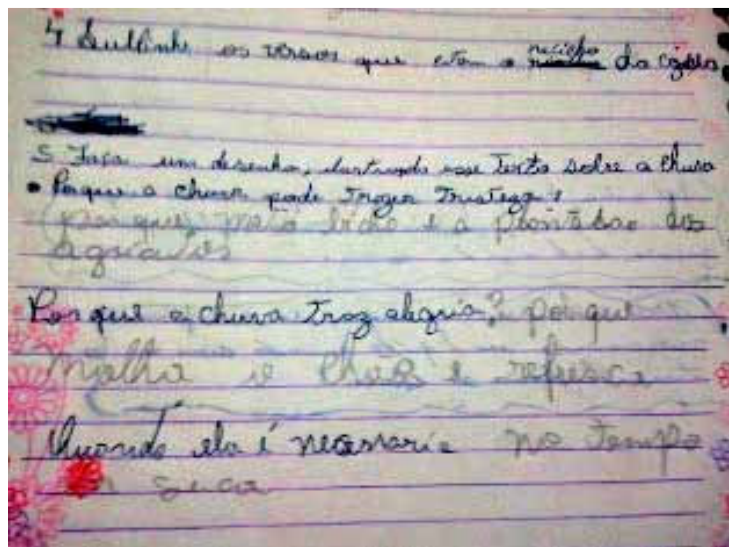 4 Sublinhe os versos que estam a do
5 Faça um desenho, ilustrando esse texto sobre a chuva
• Porque a chuva pode trazer tristeza?
porque mata e a plantasao dos
Por que a chuva traz alegria? por que
molha o chão e refresca
Quando ela é necessaria no tempo
seca